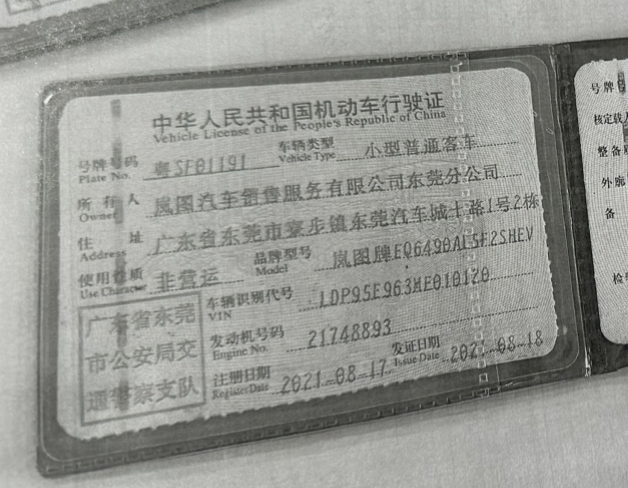 中华人民共和国机动车行驶证
Vehicle License of the People's Republic of China
号牌号码 粤SF01191 车辆类型 小型普通客车
Plate No. Vehicle Type
所有人 岚图汽车销售服务有限公司东莞分公司
Owner
住址 广东省东莞市寮步镇东莞汽车城十路1号2栋
Address
使用性质 非营运 品牌型号 岚图牌EQ6490AL5F2SHEV
Use Character Model
车辆识别代号 LDP95E963ME010120
VIN
发动机号码 21748893
Engine No.
注册日期 2021-08-17 发证日期 2021-08-18
Register Date Issue Date
广东省东莞
市公安局交
通警察支队
号牌
核定载人
整备
外廓
备
检